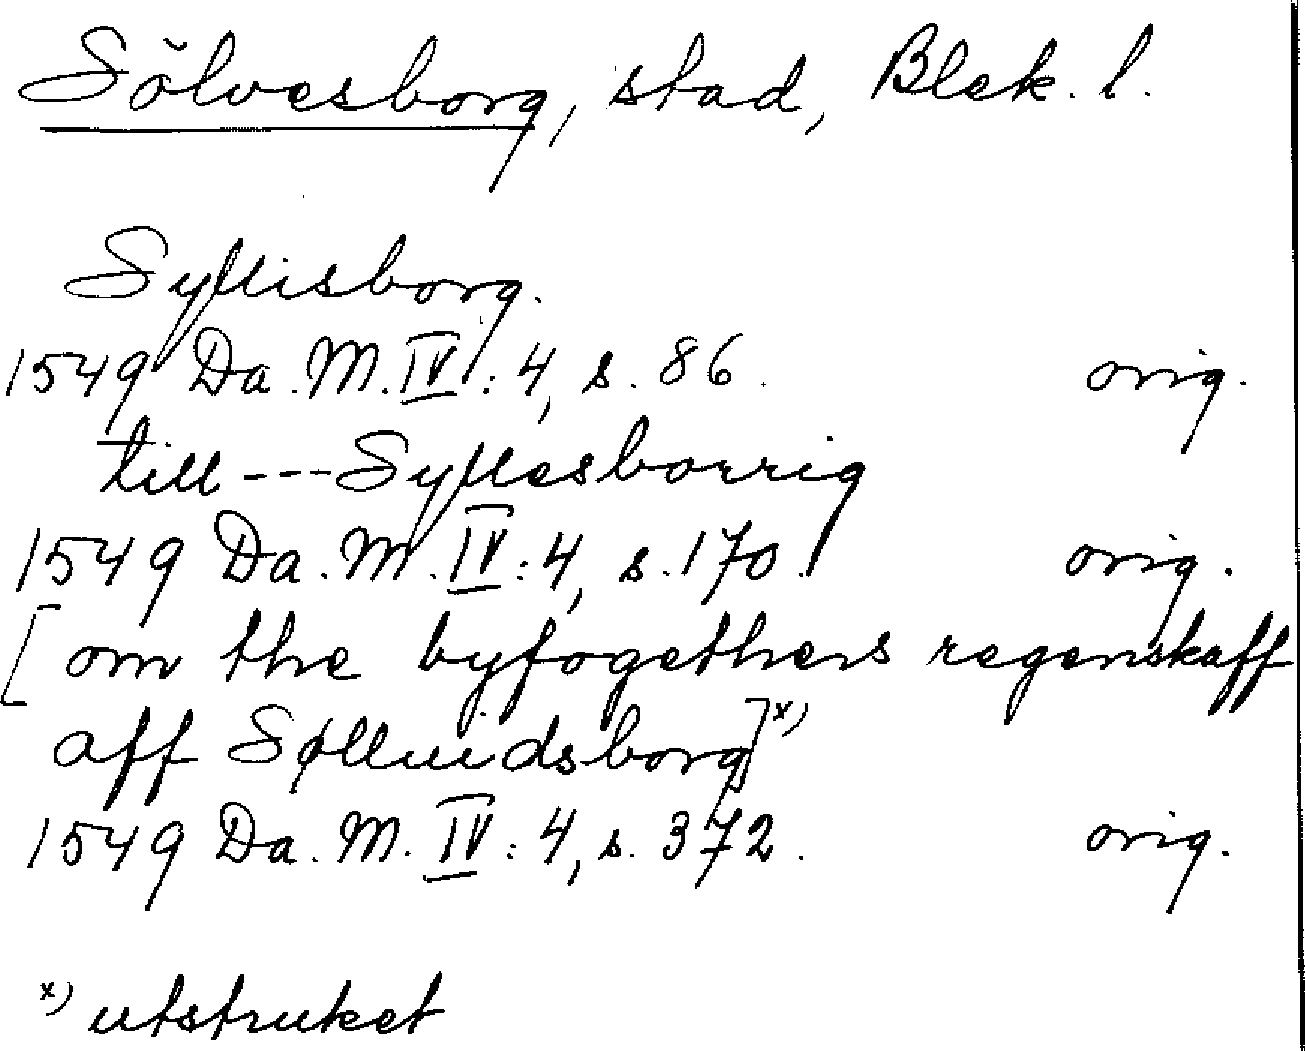 Sölvesborg, stad, Blek. l.
Syllisborg.
1549 Da. M. IV: 4, s. 86. orig.
till --- Syllesborrig
1549 Da. M. IV: 4, s. 170. orig.
[om the byfogethers regenskaff
aff Sølluidsborg] x)
1549 Da. M. IV: 4, s. 372. orig.
x) utstruket